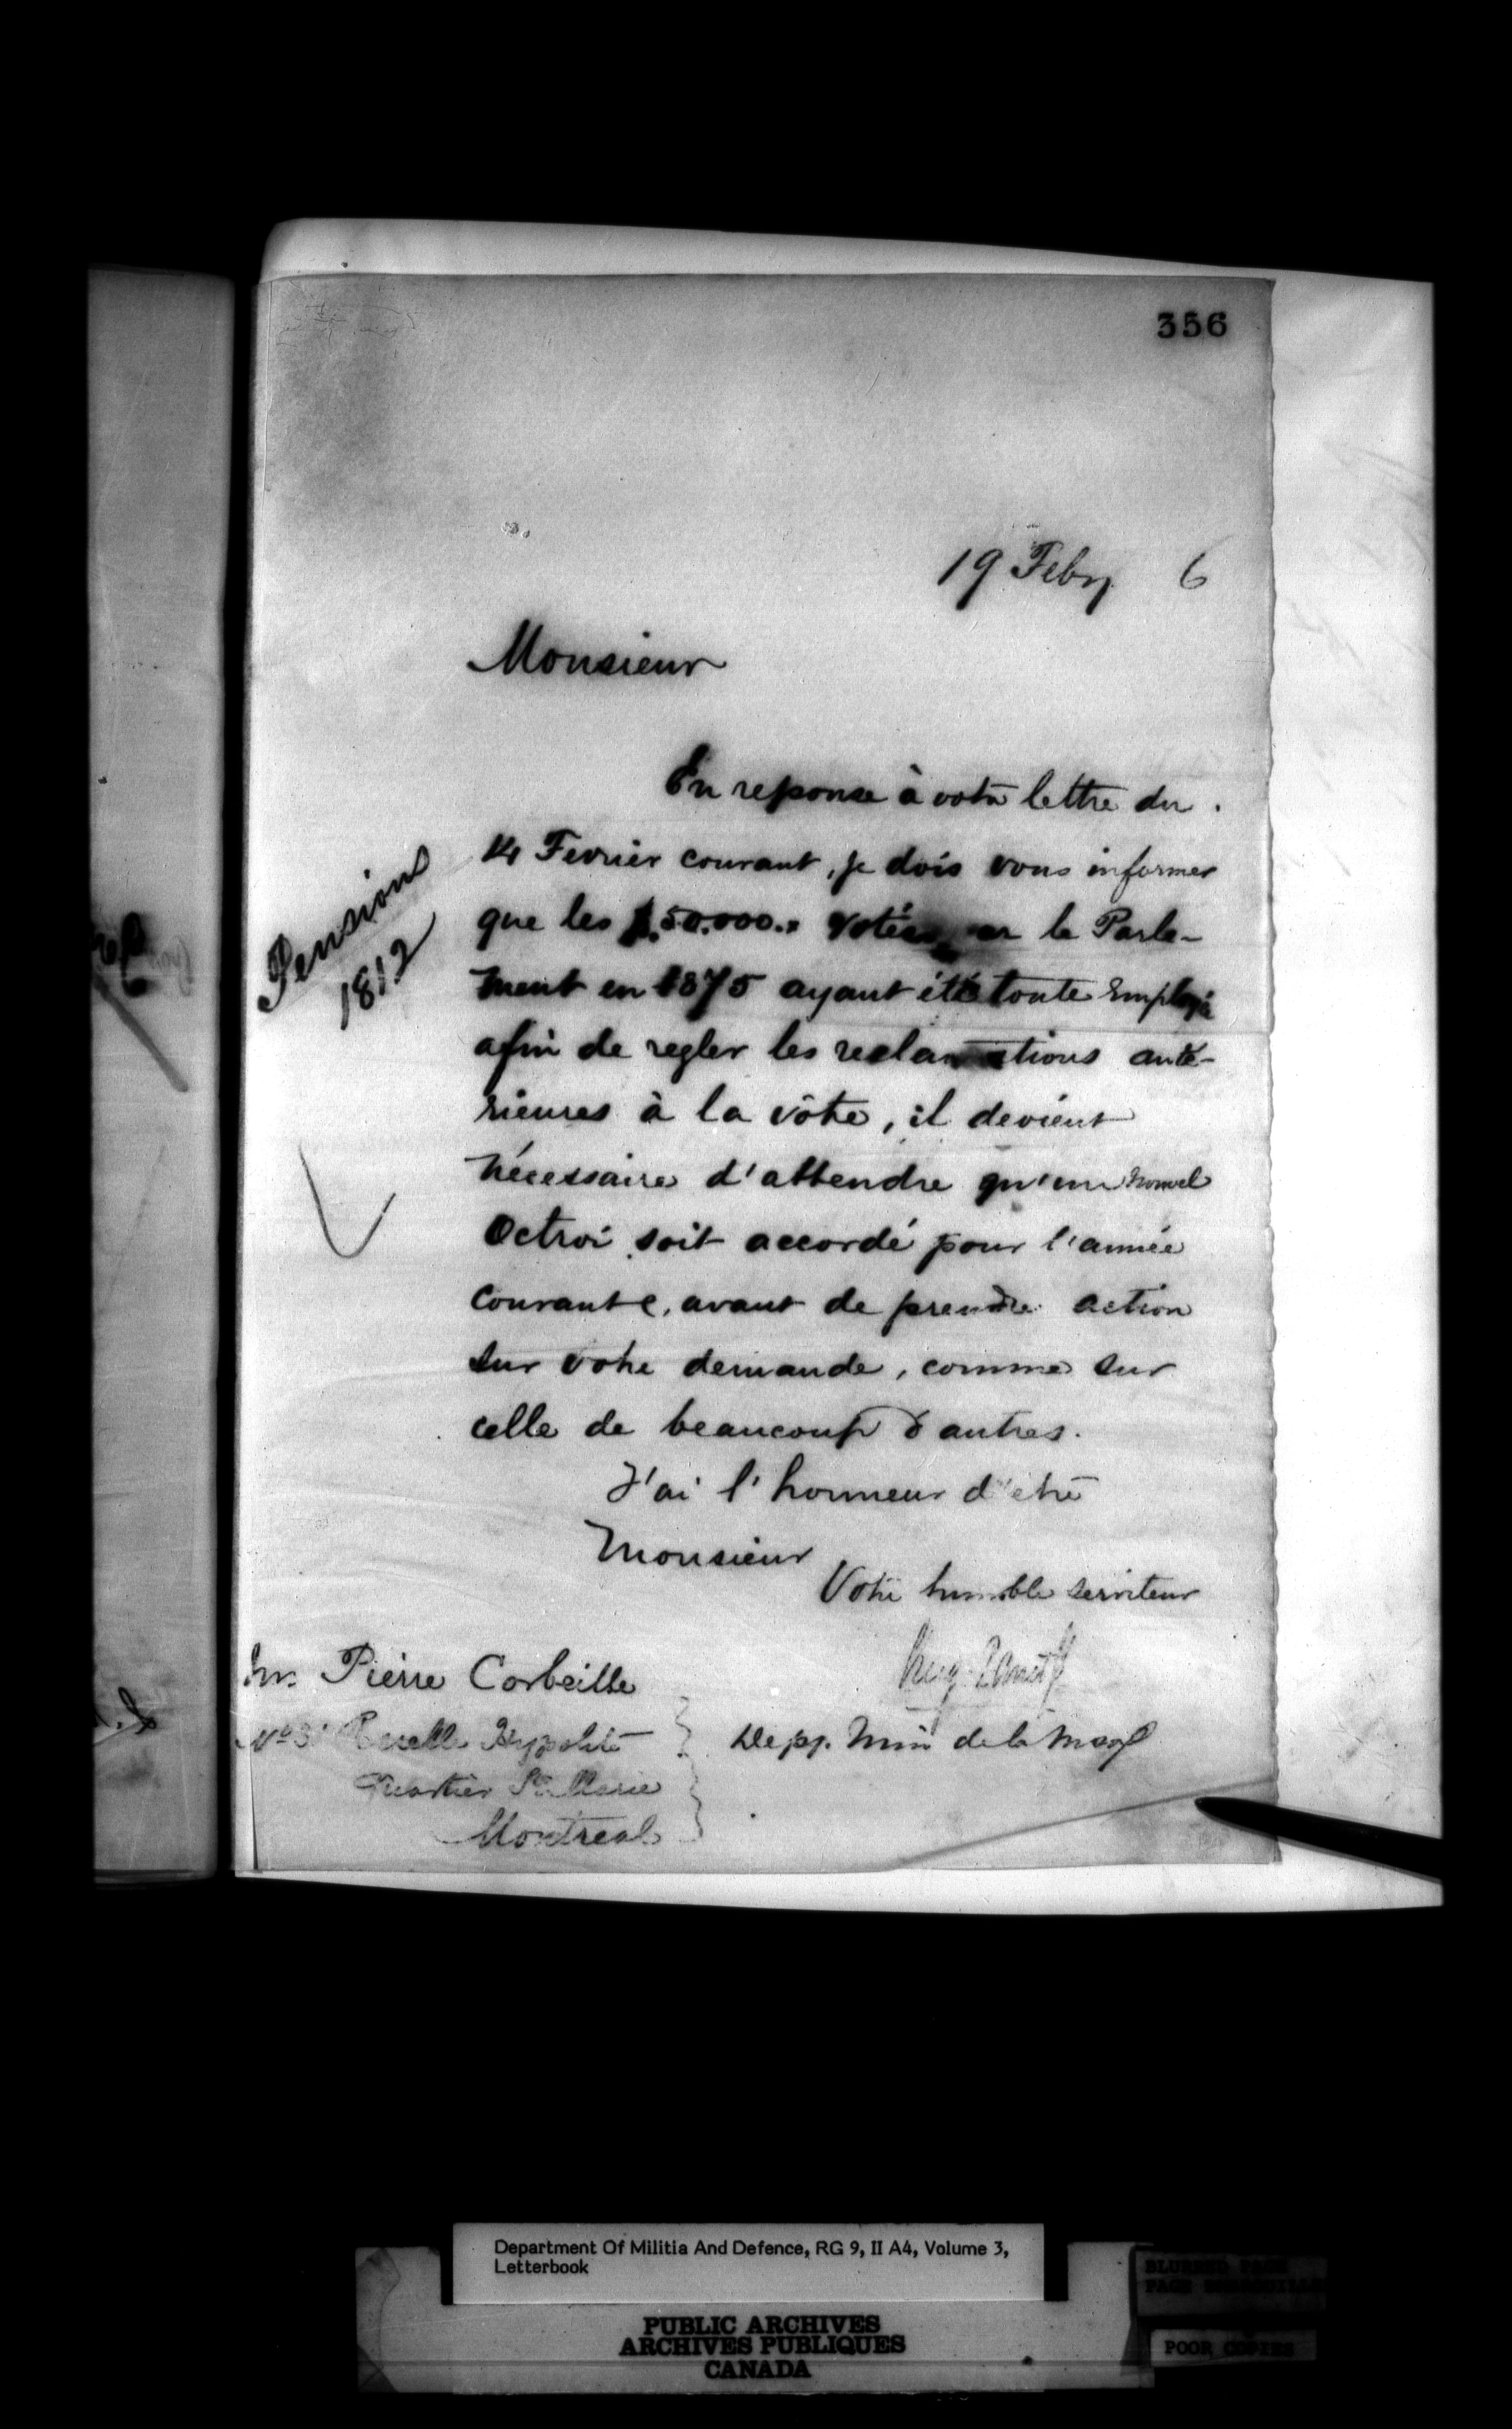 356
19 Feby 6
Monsieur
En reponse à votre lettre du
14 Fevrier courant, je dois vous informer
que les $50.000.. votées par le Parle-
ment en 1875 ayant été toute employé
afin de regler les reclamations anté-
rieures à la vôtre, il devient
nécessaire d'attendre qu'un nouvel
Octroi soit accordé pour l'année
courante, avant de prendre action
sur votre demande, comme sur
celle de beaucoup d'autres.
J'ai l'honneur d'être
Monsieur
Votre humble serviteur
Pensions
1812
Mr. Pierre Corbeille
No 3 Ruelle Hypolite
Quartier Ste Marie
Montreal
Depp. Min de la
Department Of Militia And Defence, RG 9, II A4, Volume 3,
Letterbook
PUBLIC ARCHIVES
ARCHIVES PUBLIQUES
CANADA
BLURRED PAGE
POOR COPIES